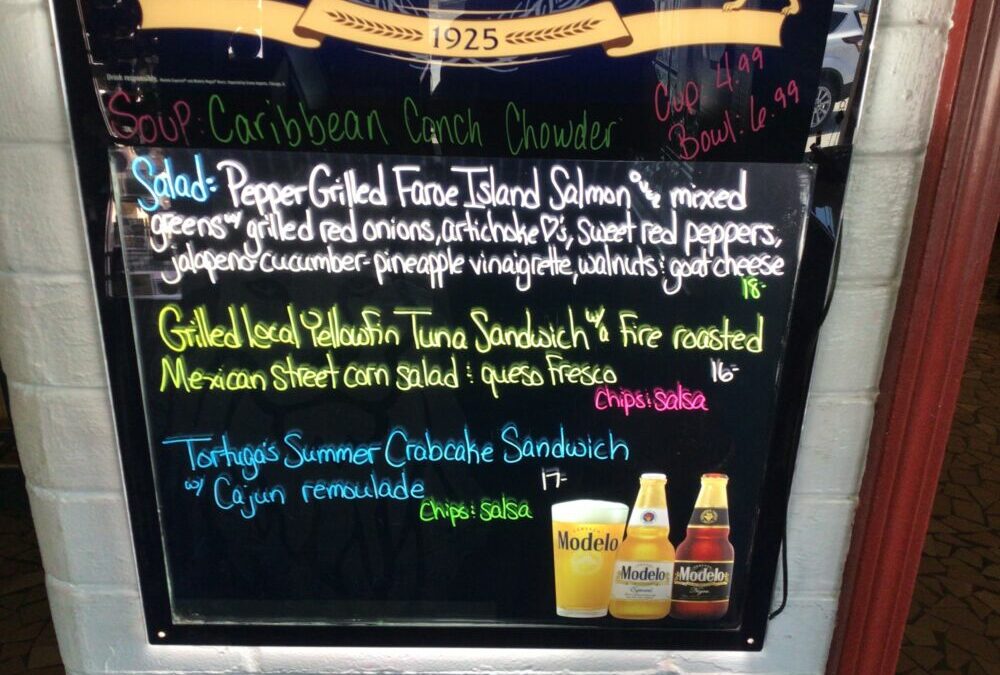 1925
Drink responsibly.
Soup: Caribbean Conch Chowder
Cup 4.99
Bowl: 6.99
Salad: Pepper Grilled Faroe Island Salmon over mixed
greens w/ grilled red onions, artichoke ♡'s, sweet red peppers,
jalapeno-cucumber-pineapple vinaigrette, walnuts & goat cheese
18-
Grilled Local Yellowfin Tuna Sandwich w/ a Fire roasted
Mexican Street corn salad & queso Fresco 16-
Chips & salsa
Tortuga's Summer Crabcake Sandwich
w/ Cajun remoulade 17-
Chips & salsa
Modelo
Modelo
Especial
Modelo
Negra